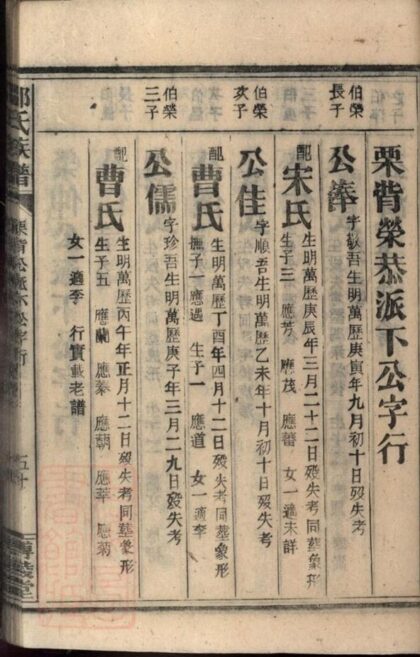 栗背榮恭派下公字行
伯榮長子
公奉字敬吾生明萬歷庚寅年九月初十日歿失考
配宋氏生明萬歷庚辰年三月二十二日歿失考同墓象形
生子三 應芳 應茂 應蕃 女一適未詳
伯榮次子
公佳字順吾生明萬歷乙未年十月初十日歿失考
配曹氏生明萬歷丁酉年四月十二日歿失考同墓象形
撫子一應遇 生子一 應道 女一適李
伯榮三子
公儒字珍吾生明萬歷庚子年三月二九日歿失考
配曹氏生明萬歷丙午年正月十二日歿失考同墓象形
生子五 應蘭 應蓁 應朝 應莘 應菊
女一適李 行實載老譜
氏族譜
栗背公派下公字行
五十